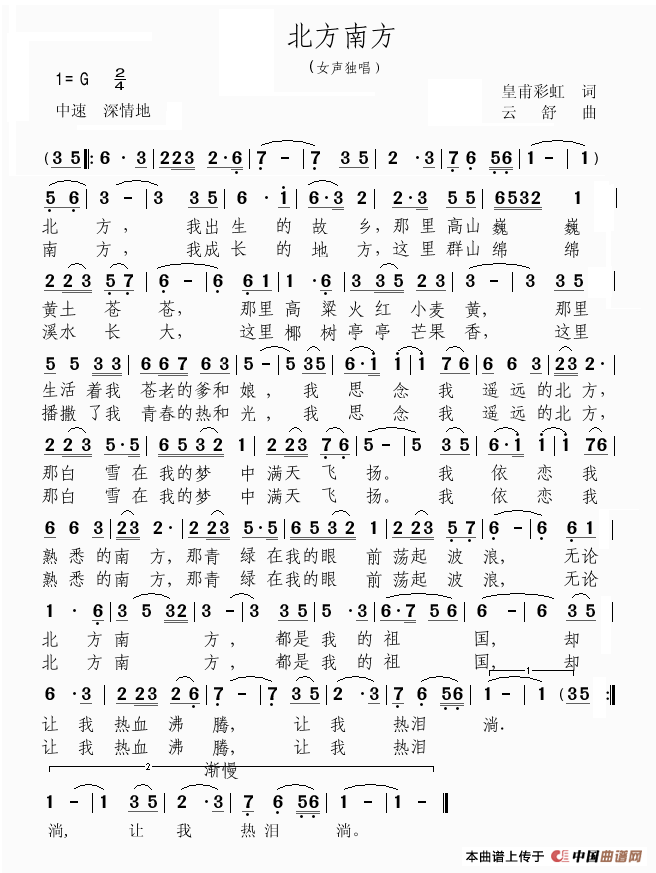 北方南方
(女声独唱)
1=G 2/4
皇甫彩虹 词
中速 深情地
云舒 曲
(3 5 ‖: 6 · 3 | 2 2 3 2 · 6 | 7 - | 7 3 5 | 2 · 3 | 7 6 5 6 | 1 - | 1 )
5 6 | 3 - | 3 3 5 | 6 · i | 6 · 3 2 | 2 · 3 5 5 | 6 5 3 2 1 |
北 方, 我出 生 的 故 乡, 那 里 高山 巍 巍
南 方, 我成 长 的 地 方, 这 里 群山 绵 绵
2 2 3 5 7 | 6 - | 6 6 1 | 1 · 6 | 3 3 5 2 3 | 3 - | 3 3 5 |
黄土 苍 苍, 那里 高 粱 火 红 小麦 黄, 那里
溪水 长 大, 这里 椰 树 亭 亭 芒果 香, 这里
5 5 3 3 | 6 6 7 6 3 | 5 - | 5 3 5 | 6 · i | i i 7 6 | 6 6 3 | 2 3 2 · |
生活 着我 苍老的爹和 娘, 我 思 念 我 遥 远 的 北 方,
播撒 了我 青春的热和 光, 我 思 念 我 遥 远 的 北 方,
2 2 3 5 · 5 | 6 5 3 2 1 | 2 2 3 7 6 | 5 - | 5 3 5 | 6 · i i | i 7 6 |
那白 雪 在 我的梦 中 满天 飞 扬。 我 依 恋 我
那白 雪 在 我的梦 中 满天 飞 扬。 我 依 恋 我
6 6 3 | 2 3 2 · | 2 2 3 5 · 5 | 6 5 3 2 1 | 2 2 3 5 7 | 6 - | 6 6 1 |
熟 悉 的 南 方, 那青 绿 在 我的眼 前 荡起 波 浪, 无论
熟 悉 的 南 方, 那青 绿 在 我的眼 前 荡起 波 浪, 无论
1 · 6 | 3 5 3 2 | 3 - | 3 3 5 | 5 · 3 | 6 · 7 5 6 | 6 - | 6 3 5 |
北 方 南 方, 都是 我 的 祖 国, 却
北 方 南 方, 都是 我 的 祖 国, 却
1
6 · 3 | 2 2 3 2 6 | 7 - | 7 3 5 | 2 · 3 | 7 6 5 6 | 1 - | 1 (3 5 :‖
让 我 热血 沸 腾, 让 我 热泪 淌.
让 我 热血 沸 腾, 让 我 热泪
2
渐慢
1 - | 1 3 5 | 2 · 3 | 7 6 5 6 | 1 - | 1 - ‖
淌, 让 我 热泪 淌。
本曲谱上传于 中国曲谱网